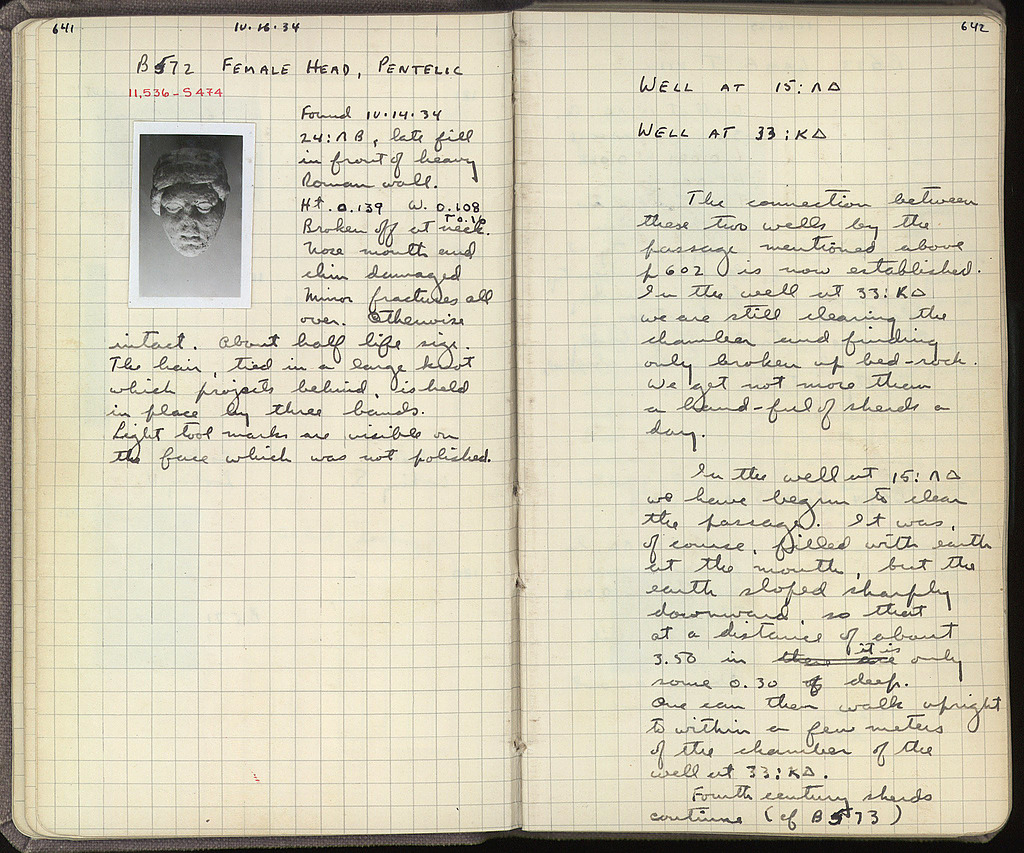 641
10.16.34
B 572 FEMALE HEAD, PENTELIC
11,536 - S 474
Found 10.14.34
24:ΛB, late fill
in front of heavy
Roman wall.
Ht. 0.139 W. 0.108
T 0.16
Broken off at neck.
Nose mouth and
chin damaged
Minor fractures all
over. Otherwise
intact. About half life size.
The hair, tied in a large knot
which projects behind, is held
in place by three bands.
Light tool marks are visible on
the face which was not polished.
642
WELL AT 15:ΛΔ
WELL AT 33:ΚΔ
The connection between
these two wells by the
passage mentioned above
p 602 is now established.
In the well at 33:ΚΔ
we are still clearing the
chamber and finding
only broken up bed-rock.
We get not more than
a hand-ful of sherds a
day.
In the well at 15:ΛΔ
we have begun to clear
the passage. It was,
of course, filled with earth
at the mouth, but the
earth sloped sharply
downward, so that
at a distance of about
it is
3.50 m there are only
some 0.30 of deep.
One can then walk upright
to within a few meters
of the chamber of the
well at 33:ΚΔ.
Fourth century sherds
continue (cf B 573)